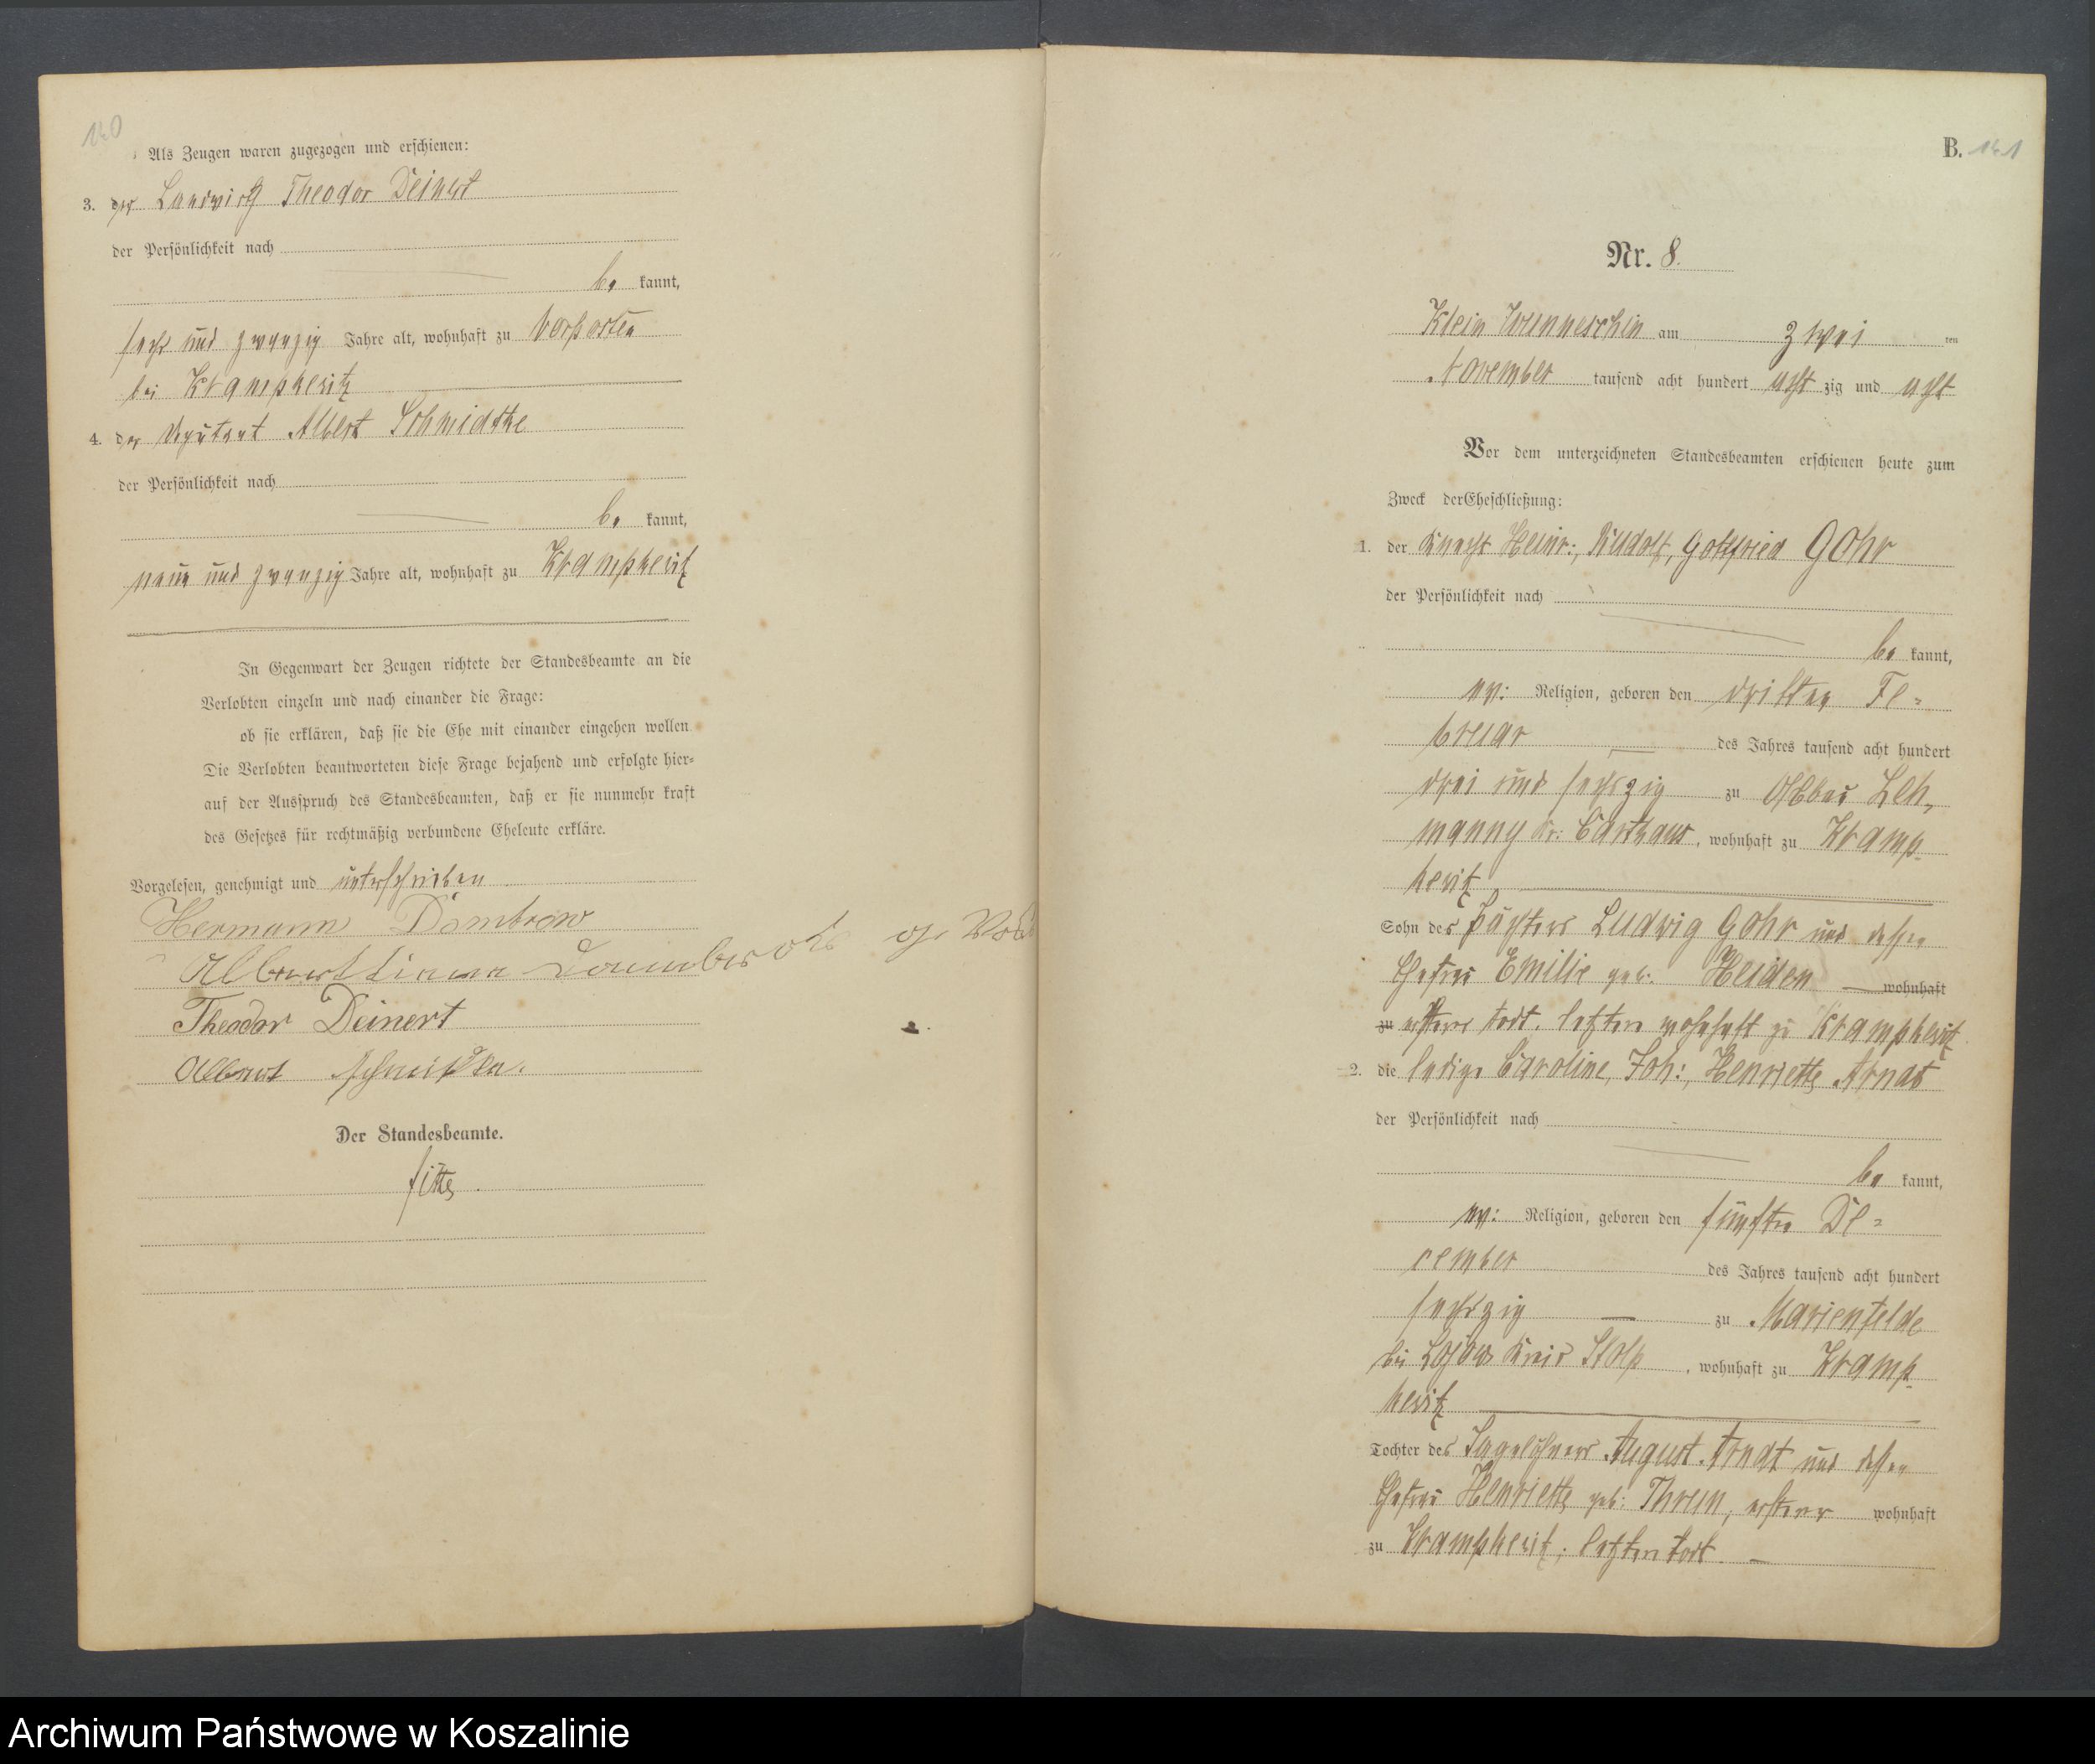 140
Als Zeugen waren zugezogen und erschienen:
3. der Landwirth Theodor Deinert
der Persönlichkeit nach
be kannt,
sechs und zwanzig Jahre alt, wohnhaft zu Vorposten
bei Krampkewitz
4. der Deputant Albert Schmidtke
der Persönlichkeit nach
be kannt,
neun und zwanzig Jahre alt, wohnhaft zu Krampkewitz
In Gegenwart der Zeugen richtete der Standesbeamte an die
Verlobten einzeln und nach einander die Frage:
ob sie erklären, daß sie die Ehe mit einander eingehen wollen
Die Verlobten beantworteten diese Frage bejahend und erfolgte hier-
auf der Ausspruch des Standesbeamten, daß er sie nunmehr kraft
des Gesetzes für rechtmäßig verbundene Eheleute erkläre.
Vorgelesen, genehmigt und unterschrieben
Hermann Dombrow
Theodor Deinert
Albert Schmidtke.
Der Standesbeamte.
B. 141
Nr. 8.
Klein Wunneschin am zwei ten
November tausend acht hundert acht zig und acht
Vor dem unterzeichneten Standesbeamten erschienen heute zum
Zweck der Eheschließung:
1. der Knecht Heinr:, Rudolf, Gottfried Gohr
der Persönlichkeit nach
be kannt,
ev: Religion, geboren den dritten Fe=
bruar des Jahres tausend acht hundert
drei und sechszig zu Abbau Leh,
manny Kr: Carthaus, wohnhaft zu Kramp-
kewitz
Sohn des Pächters Ludwig Gohr und dessen
Ehefrau Emilie geb: Heiden wohnhaft
zu ersterer todt, letztere wohnhaft zu Krampkewitz
2. die ledige Caroline, Joh:, Henriette Arndt
der Persönlichkeit nach
be kannt,
ev: Religion, geboren den fünften De=
cember des Jahres tausend acht hundert
sechszig zu Marienfelde
bei Lojow Kreis Stolp, wohnhaft zu Kramp-
kewitz
Tochter des Tagelöhners August Arndt und dessen
Ehefrau Henriette geb: Thrun, ersterer wohnhaft
zu Krampkewitz, letztere todt.
Archiwum Państwowe w Koszalinie